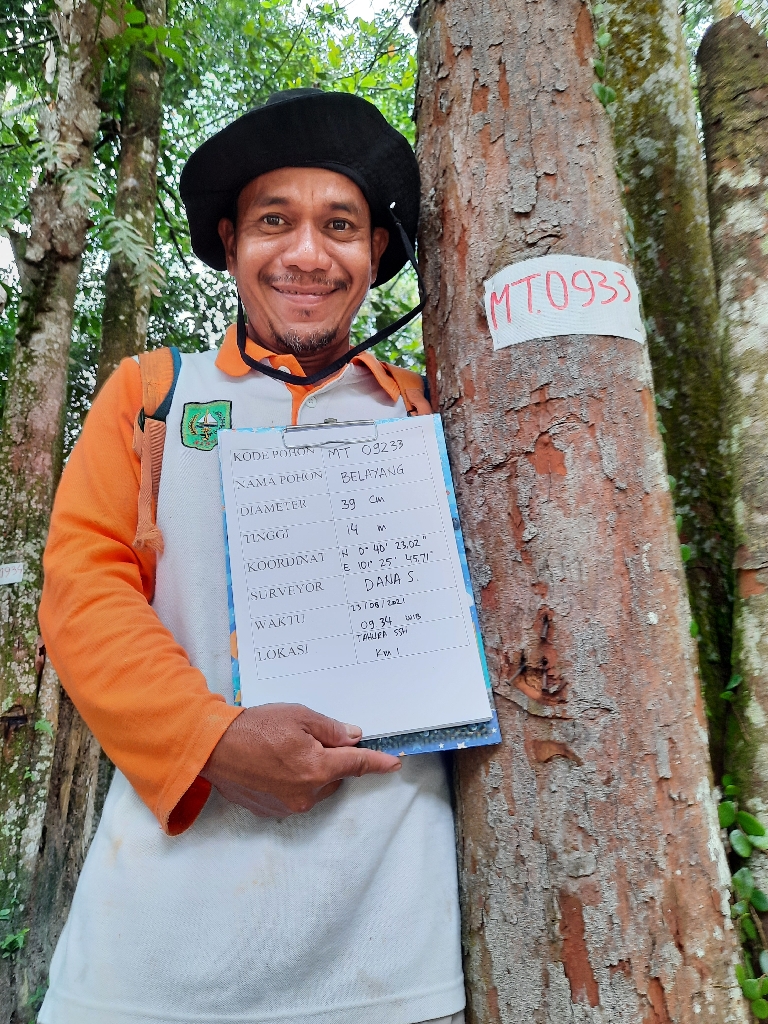 MT.0933
KODE POHON MT 09233
NAMA POHON BELAYANG
DIAMETER 39 cm
TINGGI 14 m
KOORDINAT N 0° 40' 23.02"
E 101° 25' 45.71"
SURVEYOR DANA S.
WAKTU 23/08/2021
09.34 WIB
LOKASI TAHURA SSH
Km 1